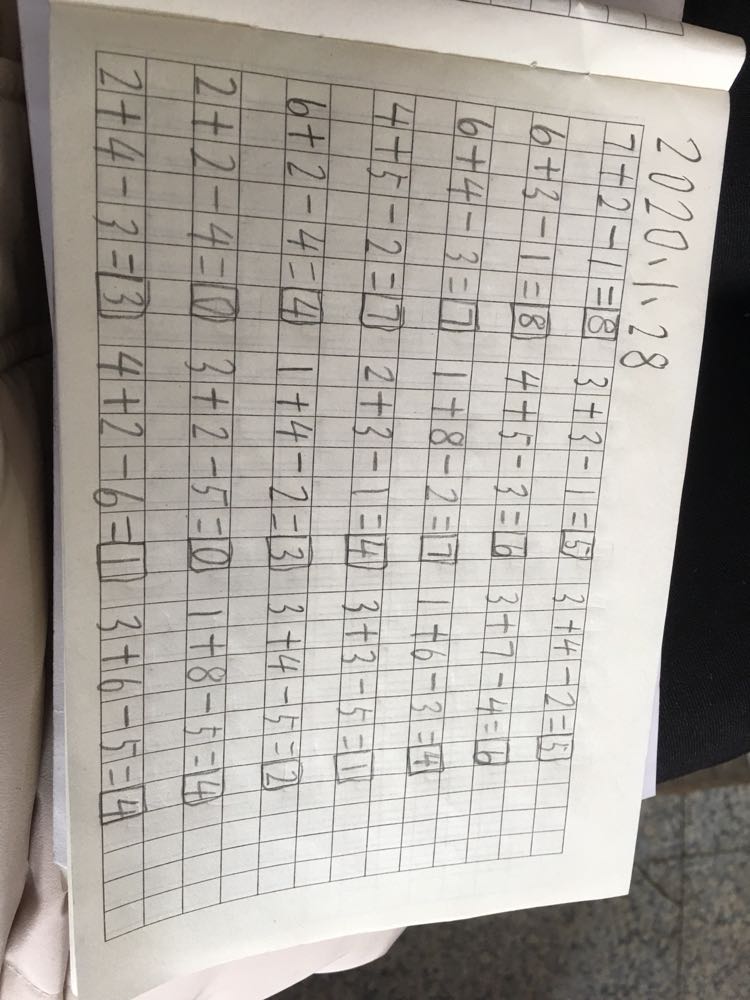 2020、1、28
7+2-1=8 3+3-1=5 3+4-2=5
6+3-1=8 4+5-3=6 3+7-4=6
6+4-3=7 1+8-2=7 1+6-3=4
4+5-2=7 2+3-1=4 3+3-5=1
6+2-4=4 1+4-2=3 3+4-5=2
2+2-4=0 3+2-5=0 1+8-5=4
2+4-3=3 4+2-6=1 3+6-5=4